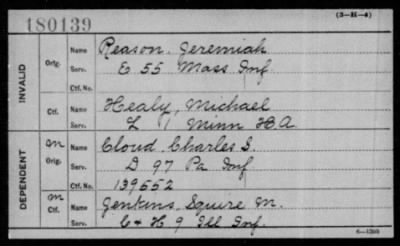 180139
(3-H-4)
INVALID
Orig. Name Reason, Jeremiah
Serv. E 55 Mass Inf
Ctf. No.
Ctf. Name Healy, Michael
Serv. L 1 Minn H.A.
DEPENDENT
m Orig. Name Cloud, Charles S.
Serv. D 97 Pa Inf
Ctf. No. 139552
m Ctf. Name Jenkins, Squire M.
Serv. C & H 9 Ill Inf.